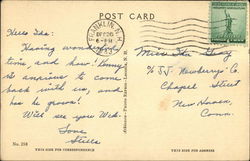 POST CARD
FRANKLIN, N.H.
DEC 20
6 - PM
Miss Ida Gray
% J.J. Newberrys Co.
Chapel Street
New Haven,
Conn.
Hello Ida:
Having wonderful
time and how! Kenny
is anxious to come
back with us, and
has he grown!
Will see you Wed.
Love
Stella
No. 254
THIS SIDE FOR CORRESPONDENCE
THIS SIDE FOR ADDRESS